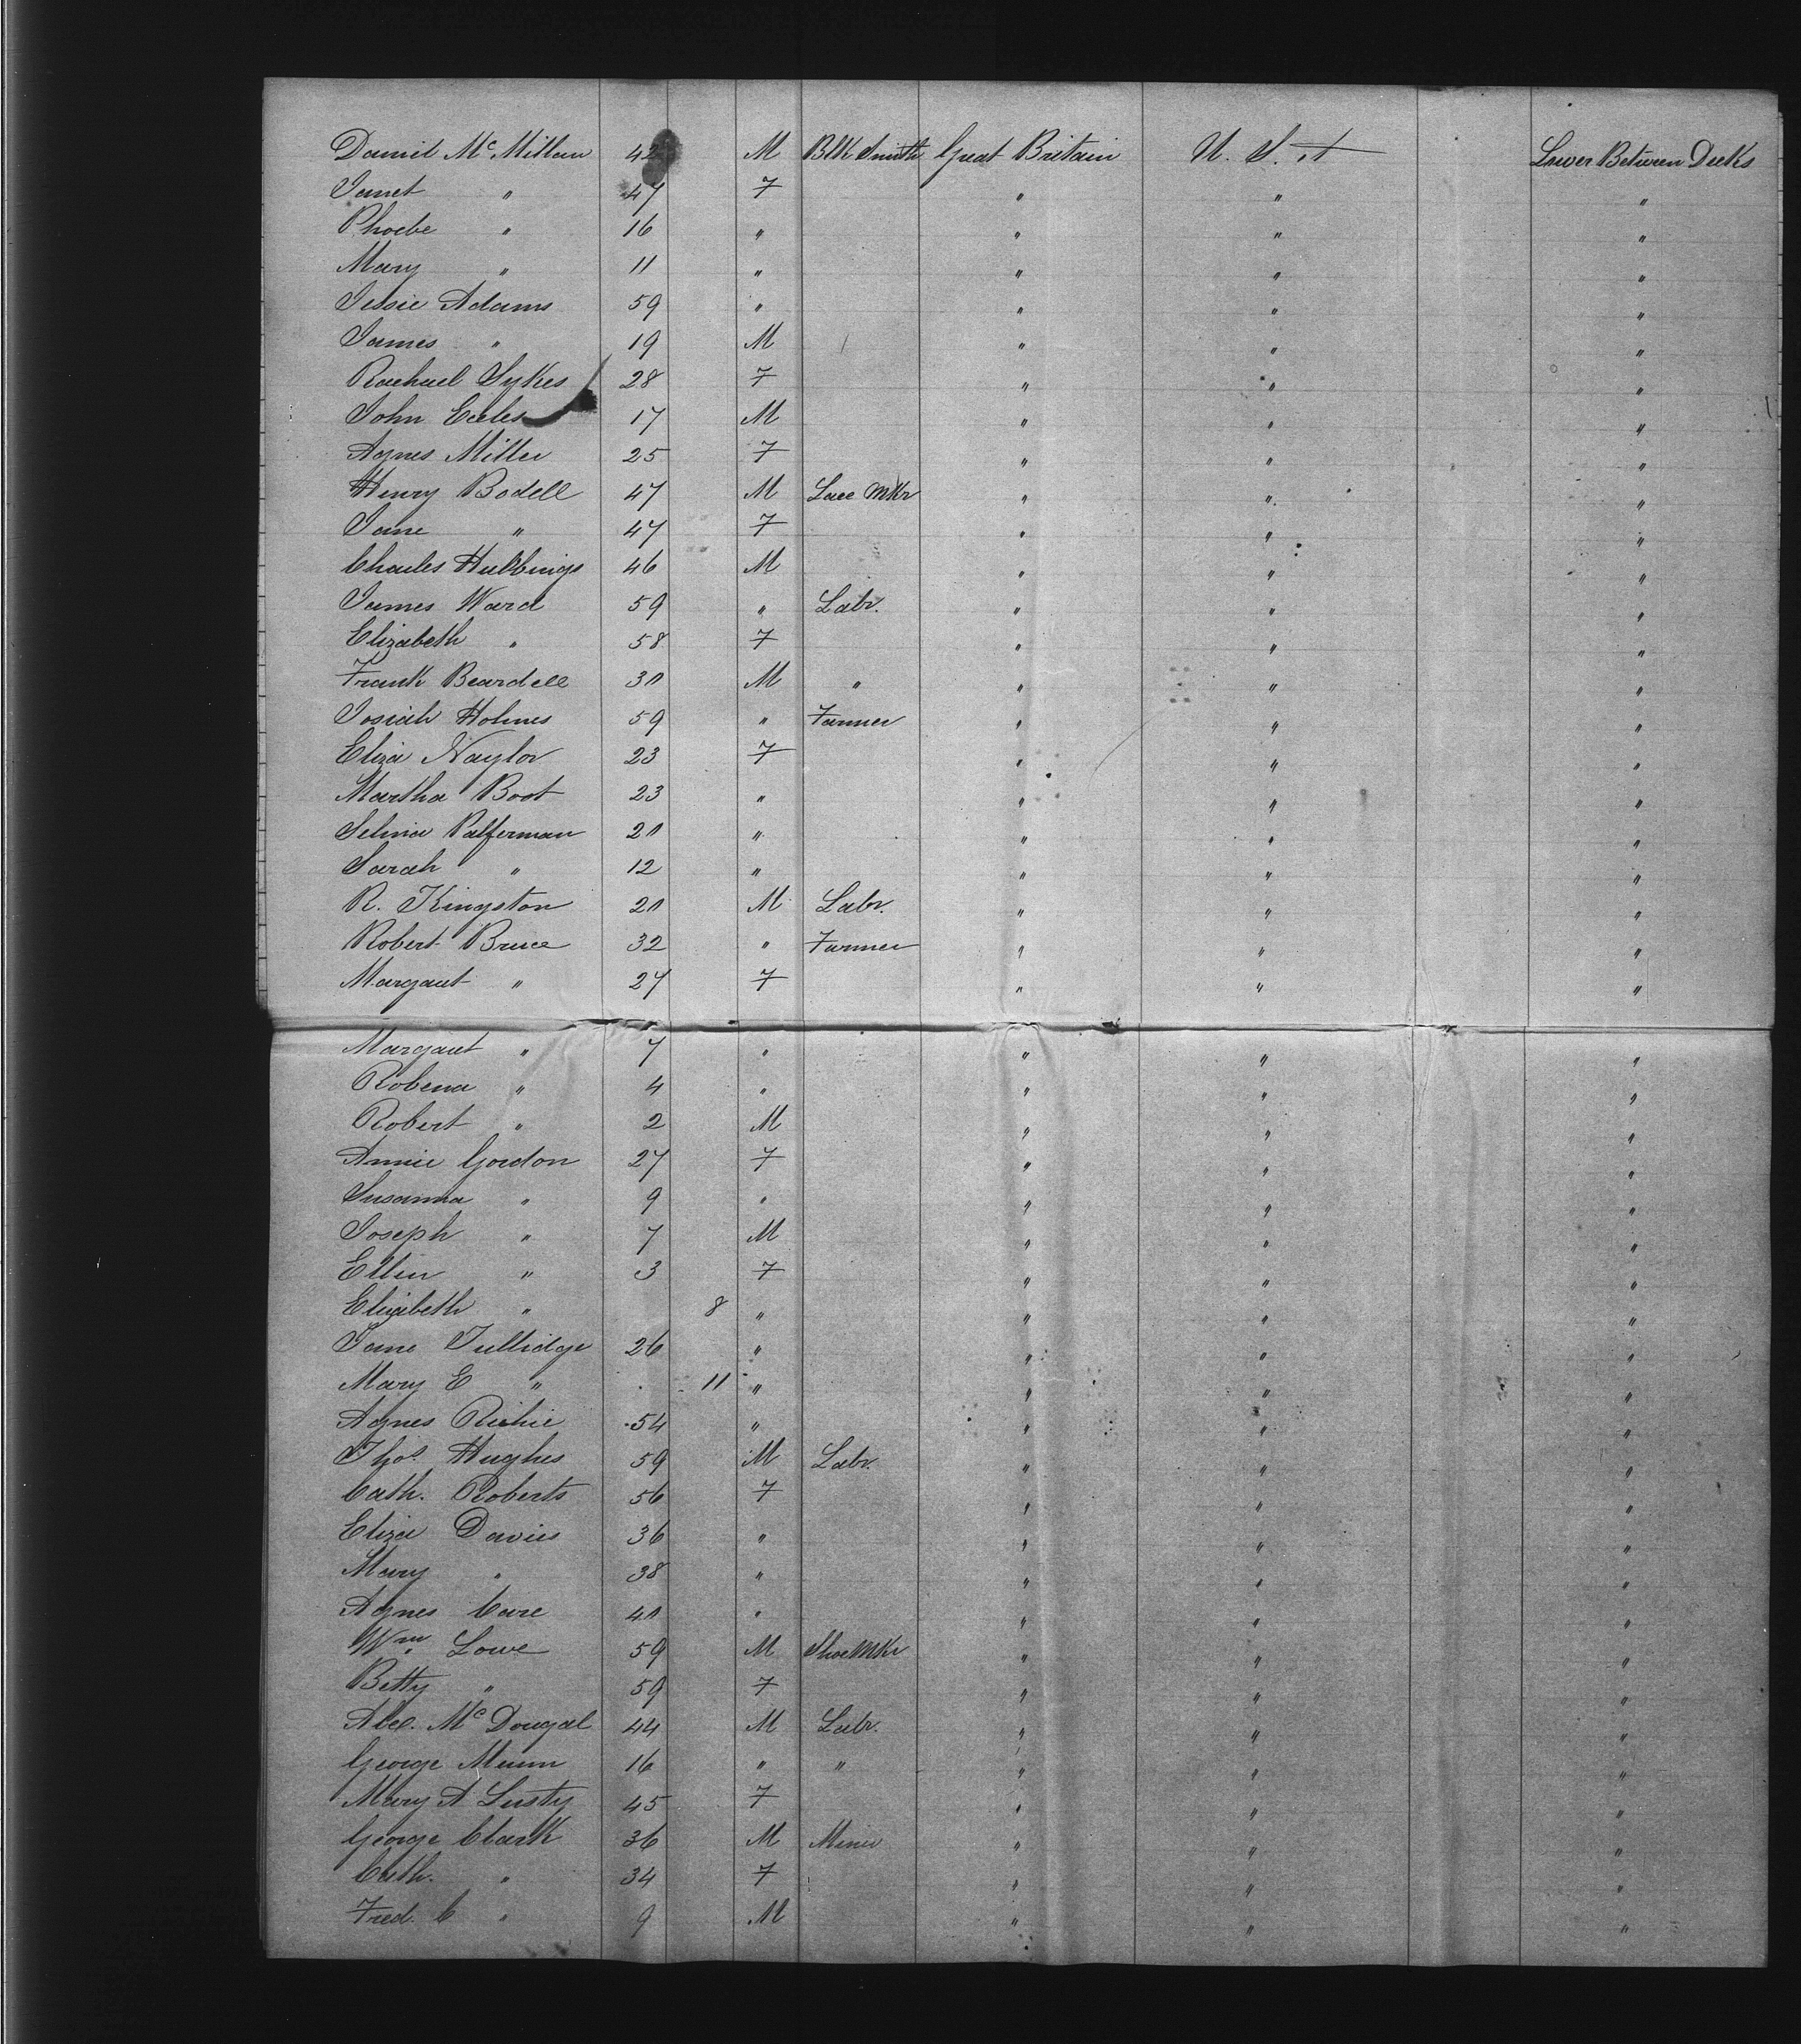 Daniel Mc Millan 42 M Blk Smith Great Britain U. S. A Lower Between Decks
Janet " 47 F " " "
Phoebe " 16 " " " "
Mary " 11 " " " "
Jessie Adams 59 " " " "
James " 19 M " " "
Rachael Sykes 28 F " " "
John Eccles 17 M " " "
Agnes Miller 25 F " " "
Henry Bodell 47 M Lace Mkr " " "
Jane " 47 F " " "
Charles Hubbings 46 M " " "
James Ward 59 " Labr. " " "
Elizabeth " 58 F " " "
Frank Beardell 30 M " " " "
Josiah Holmes 59 " Farmer " " "
Eliza Naylor 23 F " " "
Martha Boot 23 " " " "
Selina Palferman 20 " " " "
Sarah " 12 " " " "
R. Kingston 20 M Labr. " " "
Robert Bruce 32 " Farmer " " "
Margaret " 27 F " " "
Margaret " 7 " " " "
Robena " 4 " " " "
Robert " 2 M " " "
Annie Gordon 27 F " " "
Susanna " 9 " " " "
Joseph " 7 M " " "
Ellen " 3 F " " "
Elizabeth " 8 " " " "
Jane Tullidge 26 " " " "
Mary E " 11 " " " "
Agnes Richie 54 " " " "
Thos. Hughes 59 M Labr. " " "
Cath. Roberts 56 F " " "
Eliza Davies 36 " " " "
Mary " 38 " " " "
Agnes Care 40 " " " "
Wm. Lowe 59 M Shoe Mkr " " "
Betty " 59 F " " "
Alex. Mc Dougal 44 M Labr. " " "
George Munn 16 " " " " "
Mary A Lusty 45 F " " "
George Clark 36 M Miner " " "
Cath. " 34 F " " "
Fred. C " 9 M " " "